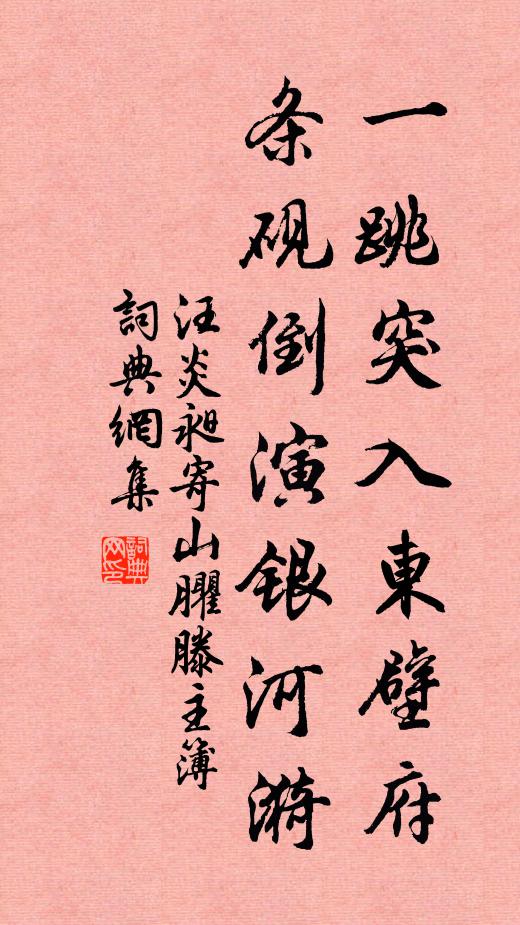 一跳突入東壁府
条硯倒演銀河漪
汪炎昶寄山臞滕主簿
詞典網集
詞典
网印